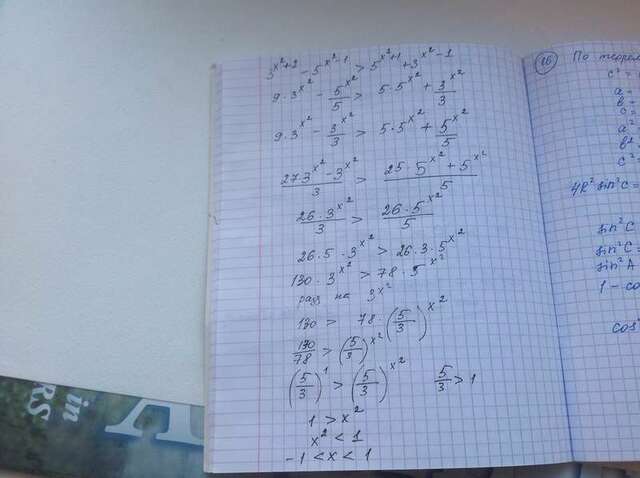 3^(x²+2) - 5^(x²-1) > 5^(x²+1) + 3^(x²-1)
9·3^(x²) - 5^(x²)/5 > 5·5^(x²) + 3^(x²)/3
9·3^(x²) - 3^(x²)/3 > 5·5^(x²) + 5^(x²)/5
(27·3^(x²) - 3^(x²))/3 > (25·5^(x²) + 5^(x²))/5
26·3^(x²)/3 > 26·5^(x²)/5
26·5·3^(x²) > 26·3·5^(x²)
130·3^(x²) > 78·5^(x²)
разд на 3^(x²)
130 > 78·(5/3)^(x²)
130/78 > (5/3)^(x²)
(5/3)^1 > (5/3)^(x²) 5/3 > 1
1 > x²
x² < 1
-1 < x < 1
16 По теорем
c² =
a =
b =
c =
a²
b²
c²
4R² sin²C =
sin²C
sin²C =
sin²A
1 - co
cos²
in
RS